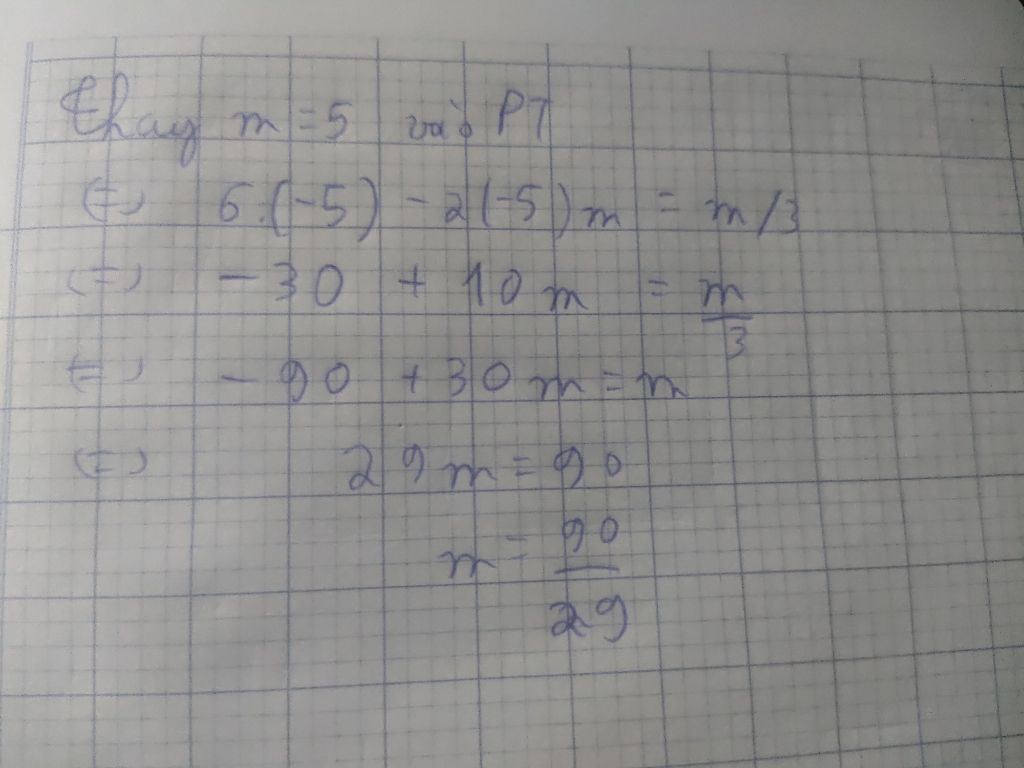 Thay m = 5 vào PT
(=) 6.(-5) - 2(-5)m = m/3
(=) - 30 + 10m = m/3
(=) - 90 + 30m = m
(=) 29m = 90
m = 90/29